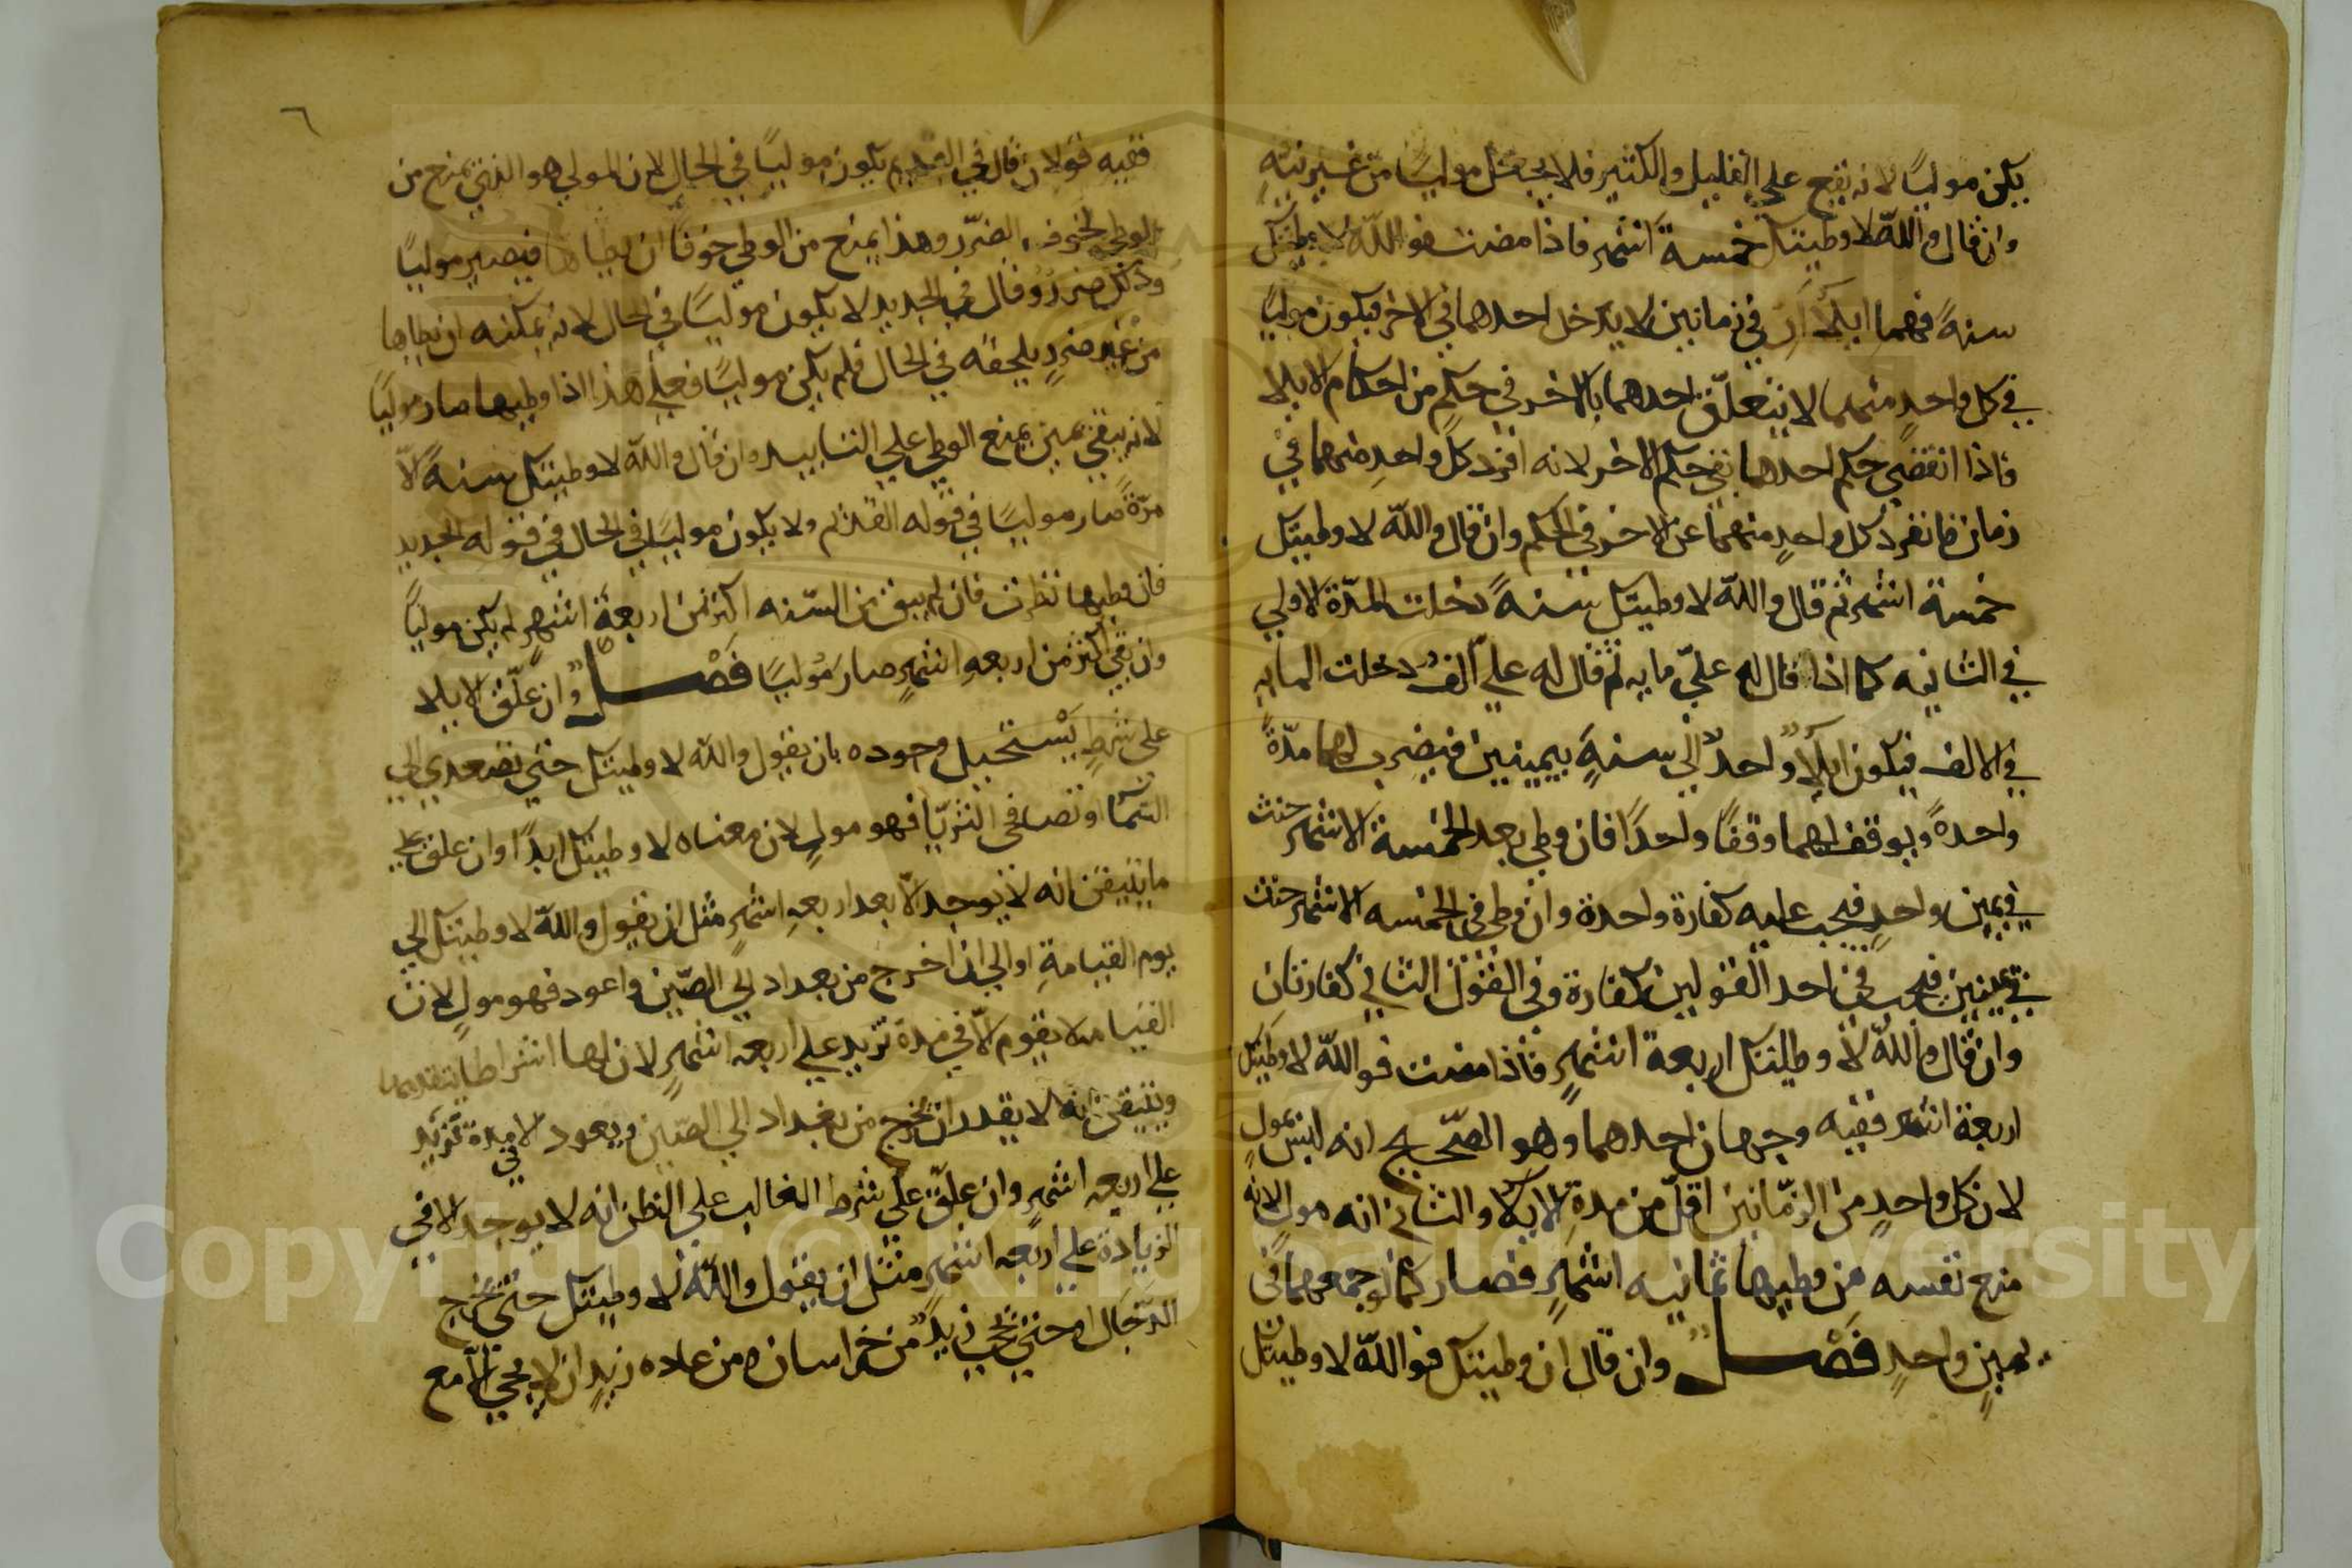 يكن موليًا لانه يقع علي القليل والكثير فلا يجعل موليًا من غير نيته
وان قال والله لا وطيتك خمسة اشهر فاذا مضت فوالله لا وطيتك
سنةً فهما ايلآان في زمانين لا يدخل احدهما في الاخر فيكون موليًا
في كل واحدٍ منهما لا يتعلّق احدهما بالاخر في حكمٍ من احكام الايلا
فاذا انقضي حكم احدهما بقي حكم الاخر لانه افرد كل واحدٍ منهما في
زمان فانفرد كل واحدٍ منهما عن الاخر في الحكم وان قال والله لا وطيتك
خمسة اشهر ثم قال والله لا وطيتك سنةً دخلت المدّة الاولي
في الثانيه كما اذا قال له عليّ مايه ثم قال له علي الفٌ دخلت المايه
في الالف فيكون ايلآ واحدٌ الي سنةٍ بيمينين فيضرب لهما مدّةً
واحدةً ويوقف لهما وقفًا واحدًا فان وطي بعد الخمسة الاشهر حنث
في يمينٍ واحدٍ فيجب عليه كفارة واحدة وان وطي في الخمسه الاشهر حنث
في يمينين فيجب في احد القولين كفارة وفي القول الثاني كفارتان
وان قال والله لا وطيتك اربعة اشهرٍ فاذا مضت فوالله لا وطيتك
اربعة اشهر ففيه وجهان احدهما وهو الصحيح انه ليس بمولٍ
لان كل واحدٍ من الزمانين اقلّ من مدة الايلا والثاني انه مولٍ لانه
منع نفسه من وطيها ثمانيه اشهرٍ فصار كما لو جمعهما في
يمينٍ واحدٍ فَصْل وان قال ان وطيتك فوالله لا وطيتك
ففيه قولان قال في القديم يكون موليًا في الحال لان المولي هو الذي يمتنع من
الوطي لخوف الضرر وهذا يمتنع من الوطي خوفًا ان يطاها فيصير موليًا
وذلك ضرر وقال في الجديد لا يكون موليًا في الحال لانه يمكنه ان يطاها
من غير ضررٍ يلحقه في الحال فلم يكن موليًا فعلي هذا اذا وطيها صار موليًا
لانه يبقي يمين يمنع الوطي علي التابيد وان قال والله لا وطيتك سنةً الّا
مرّةً صار موليًا في قوله القديم ولا يكون موليًا في الحال في قوله الجديد
فان وطيها نظرت فان لم يبق من السّنه اكثر من اربعة اشهرٍ لم يكن موليًا
وان بقي اكثر من اربعةِ اشهرٍ صار مُوليًا فَصْل وان علّق الايلا
على شرطٍ يَسْتحيل وجوده بان يقول والله لا وطيتك حتي تصعدي الي
السّما او تصافحي الثريّا فهو مولٍ لان معناه لا وطيتك ابدًا وان علق علي
ما يتيقن انه لا يوجد الّا بعد اربعةِ اشهرٍ مثل ان يقول والله لا وطيتك الي
يوم القيامةِ او الي ان اخرج من بغداد الي الصّين واعود فهو مولٍ لان
القيامه لا يقوم الّا في مدة تزيد علي اربعه اشهرٍ لان لها اشراطا يتقدمها
ويتيقن انه لا يقدر ان يخرج من بغداد الي الصّين ويعود الا في مدة تزيد
علي اربعه اشهرٍ وان علّق علي شرط الغالب علي الظن انه لا يوجد الا في
الزيادة علي اربعه اشهرٍ مثل ان يقول والله لا وطيتك حتي يخرج
الدّجال او حتي يجي زيدٌ من خراسان ومن عاده زيدٍ ان لا يجي الّا مع
٦
Copyright © King Saud University